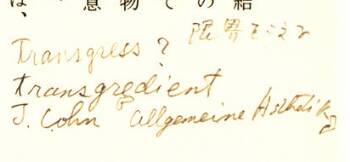 は、 意 物 で の 結
Transgress ? 限界をこえる
transgredient
J. Cohn Allgemeine Ästhetik